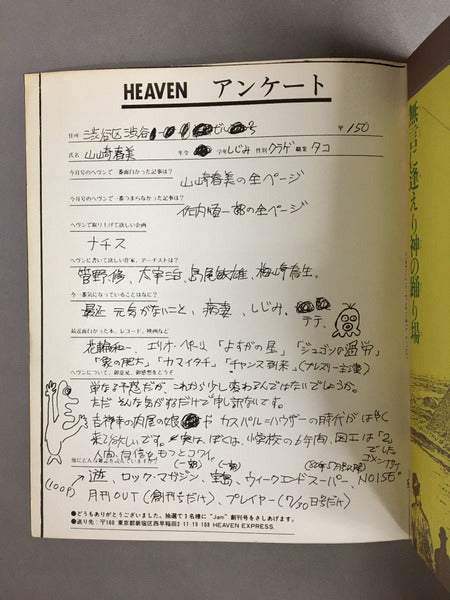 HEAVEN アンケート
住所 渋谷区渋谷 号 〒150
氏名 山崎春美 年令 学年 しじみ 性別 クラゲ 職業 タコ
今月号のヘヴンで一番面白かった記事は?
山崎春美の全ページ
今月号のヘヴンで一番つまらなかった記事は?
佐内順一郎の全ページ
ヘヴンで取り上げて欲しい企画
ナチス
ヘヴンに書いて欲しい作家、アーチストは?
皆野修、太宰治、島尾敏雄、梅崎春生、
今一番気になっていることはなに?
最近元気がないこと、病妻、しじみ、
テテ、
最近面白かった本、レコード、映画など
花輪和一、「よすがの星」「ジュゴンの過労」
「象の肥大」「カマイタチ」「チャンス到来」
ヘヴンについて、御意見、御感想をどうぞ
単なる予感だが、これから少し変わるんではないでしょうか。
ただそんな気がするだけで申し訳ないです。
吉祥寺の肉屋の娘 や カスパル=ハウザーの時代がはやく
来て欲しいです。実は、ぼくは、小学校の6年間、図工は「2」
でした
人間、自信をもつとコワイ。
他にどんな雑誌をよんでいますか?
(一部) (一部)
遊、ロック・マガジン、宝島、ウィークエンドスーパー、NOISE
(100円)
月刊OUT(創刊号だけ)、プレイヤー(7/30日号だけ)
●どうもありがとうございました。抽選で3名様に"Jam"創刊号をさしあげます。
●送り先:〒160 東京都新宿区西早稲田2-17-19-108 HEAVEN EXPRESS.
無言に逢えり神の踊り場